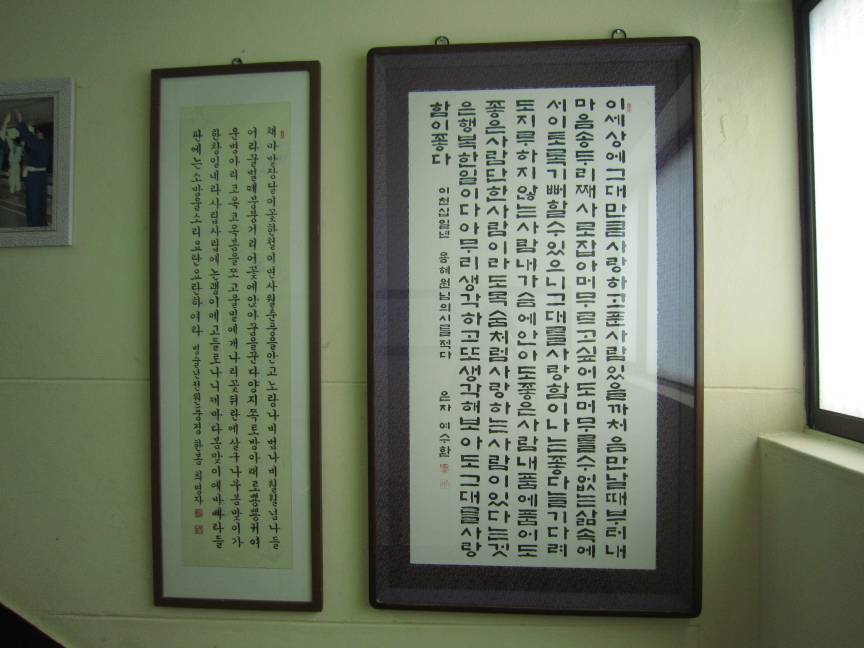 이세상에그대만큼사랑하고픈사람있을까처음만날때부터내
마음송두리째사로잡아머무르고싶어도머무를수없는삶속에
서이토록기뻐할수있으니그대를사랑함이나는좋다늘기다려
도지루하지않는사람내가슴에안아도좋은사람내품에품어도
좋은사람단한사람이라도목숨처럼사랑하는사람이있다는것
은행복한일이다아무리생각하고또생각해보아도그대를사랑
함이좋다 이천십일년 용혜원님의시를적다
채마밭장다리꽃한철이면사월춘풍을안고노랑나비범나비훨훨넘나들
어라꿀벌떼붕붕거려이꽃에앉아꿈을꾼다양지쪽토방아래로뿅뿅귀여
운병아리 봄을쪼고울밑에개나리꽃뒤란에살구나무봄맞이가
한창일네라 제마다봄맞이에바빠라들
판에는소방울소리요란요란하여라 전원풍경 최명자